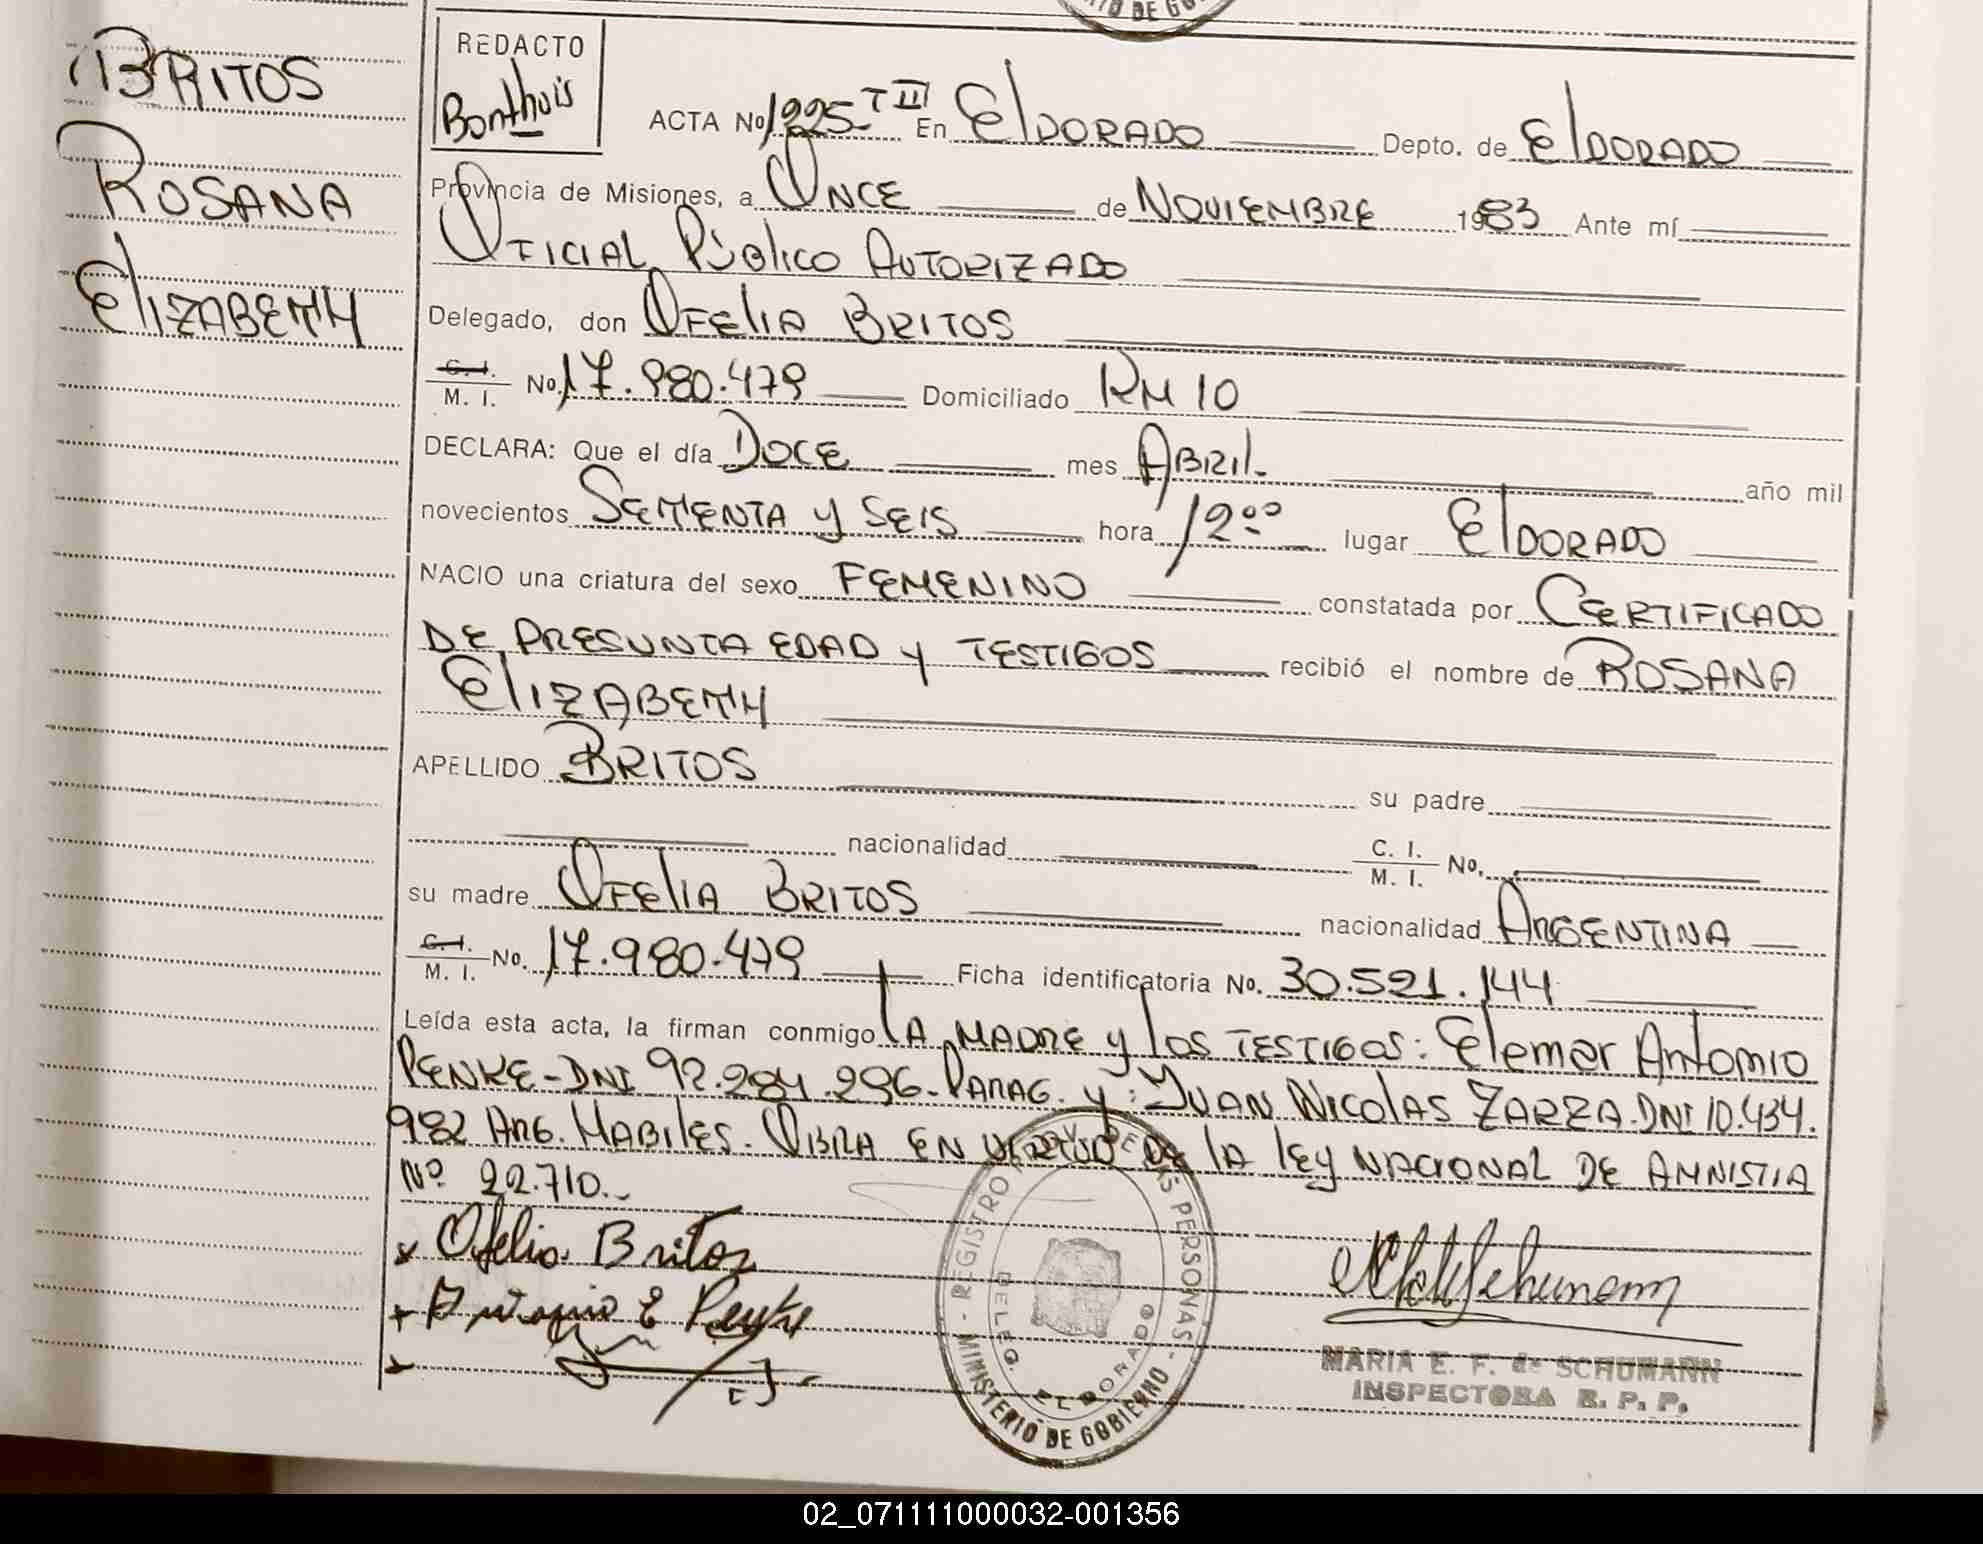 RIO DE GO
BRITOS
ROSANA
ElizABETH
REDACTO
Bonthuis
ACTA No 1225 T III En ElDORADO Depto. de ElDORADO
Provincia de Misiones, a ONCE de NOVIEMBRE 1983 Ante mí
OFICIAL PÚBLICO AUTORIZADO
Delegado, don OFElIA BRITOS
C. I. / M. I. No. 17.980.479 Domiciliado KM 10
DECLARA: Que el día DOCE mes ABRIL año mil
novecientos SETENTA y SEIS hora 12°° lugar ElDORADO
NACIO una criatura del sexo FEMENINO constatada por CERTIFICADO
DE PRESUNTA EDAD y TESTIGOS recibió el nombre de ROSANA
ElIZABETH
APELLIDO BRITOS su padre
nacionalidad C. I. / M. I. No.
su madre OFElIA BRITOS nacionalidad ARGENTINA
C. I. / M. I. No. 17.980.479 Ficha identificatoria No. 30.521.144
Leída esta acta, la firman conmigo lA MADRE y los TESTIGOS: Elemer Antonio
PENKE-DNI 92.284.296-PARAG. y: JUAN NICOlAS ZARZA-DNI 10.434.
982 ARG. HABIlES. OBRA EN VIRTUD DE lA lEy NACIONAL DE AMNISTIA
Nº 22.710.-
x Ofelia Britos
+ Antonio E Penke
REGISTRO DE LAS PERSONAS - MINISTERIO DE GOBIERNO -
DELEG. ELDORADO
MARIA E. F. de SCHUMANN
INSPECTORA R. P. P.
02_071111000032-001356